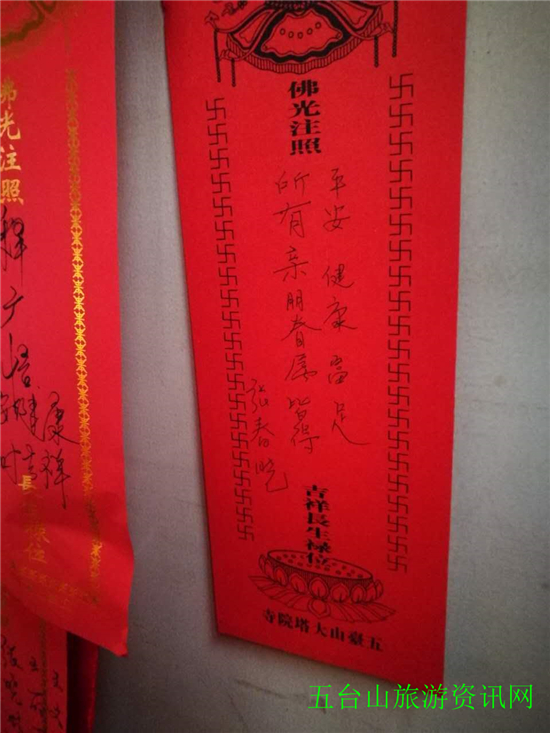 佛光注照
平安健康富足
所有亲朋眷属皆得
张春晓
吉祥長生禄位
五臺山大塔院寺
佛光注照
释广悟
健康
吉祥
長生禄位
五台山旅游资讯网